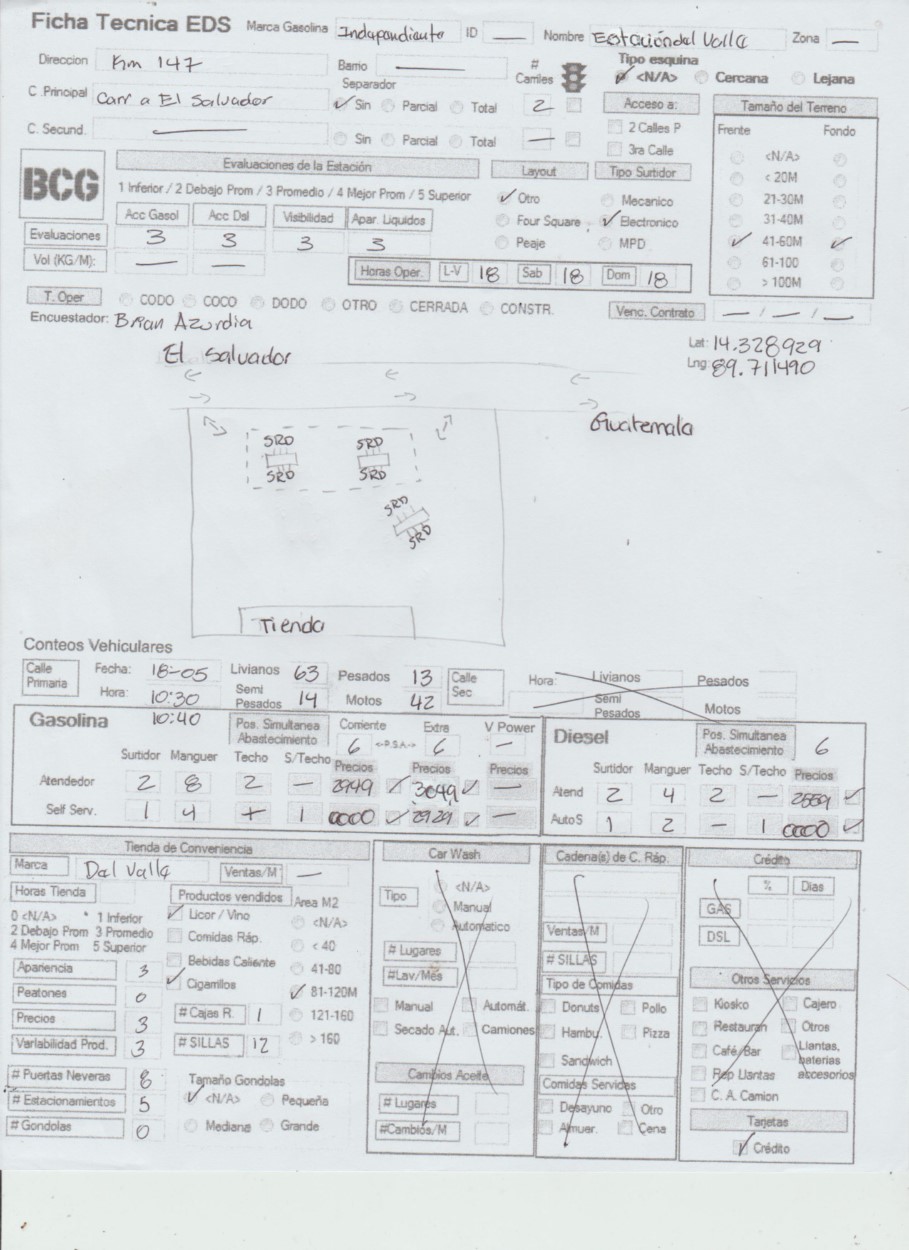 Ficha Tecnica EDS Marca Gasolina Independiente ID — Nombre Estación del Valle Zona —
Direccion Km 147 Barrio — # Carriles Tipo esquina <N/A> Cercana Lejana
C .Principal Carr a El Salvador Separador Sin Parcial Total 2 Acceso a: Tamaño del Terreno
C. Secund. — Sin Parcial Total — 2 Calles P Frente Fondo
3ra Calle <N/A>
BCG Evaluaciones de la Estación Layout Tipo Surtidor < 20M
1 Inferior / 2 Debajo Prom / 3 Promedio / 4 Mejor Prom / 5 Superior Otro Mecanico 21-30M
Acc Gasol Acc Dsl Visibilidad Apar. Liquidos Four Square Electronico 31-40M
Evaluaciones 3 3 3 3 Peaje MPD 41-60M
Vol (KG/M): — — Horas Oper. L-V 18 Sab 18 Dom 18 61-100
> 100M
T. Oper CODO COCO DODO OTRO CERRADA CONSTR. Venc. Contrato — / — / —
Encuestador: Brian Azurdia
Lat: 14.328929
Lng: 89.711490
El Salvador
Guatemala
SRD SRD
SRD SRD
SRD
SRD
Tienda
Conteos Vehiculares
Calle Primaria Fecha: 18-05 Livianos 63 Pesados 13 Calle Sec Hora: Livianos Pesados
Hora: 10:30 Semi Pesados 14 Motos 42 Semi Pesados Motos
10:40
Gasolina Pos. Simultanea Abastecimiento Corriente 6 <-P.S.A-> Extra 6 V Power —
Surtidor Manguer Techo S/Techo Precios Precios Precios
Atendedor 2 8 2 — 2949 3049 —
Self Serv. 1 4 + 1 0000 2929 —
Diesel Pos. Simultanea Abastecimiento 6
Surtidor Manguer Techo S/Techo Precios
Atend 2 4 2 — 2559
AutoS 1 2 — 1 0000
Tienda de Conveniencia
Marca Del Valle Ventas/M —
Horas Tienda Productos vendidos Area M2
0 <N/A> * 1 Inferior Licor / Vino <N/A>
2 Debajo Prom 3 Promedio Comidas Ráp. < 40
4 Mejor Prom 5 Superior Bebidas Caliente 41-80
Apariencia 3 Cigarrillos 81-120M
Peatones 0 # Cajas R. 1 121-160
Precios 3 # SILLAS 12 > 160
Variabilidad Prod. 3
# Puertas Neveras 8 Tamaño Gondolas
# Estacionamientos 5 <N/A> Pequeña
# Gondolas 0 Mediana Grande
Car Wash
Tipo <N/A>
Manual
Automatico
# Lugares
#Lav/Mes
Manual Automát.
Secado Aut. Camiones
Cambios Aceite
# Lugares
#Cambios/M
Cadena(s) de C. Ráp.
Ventas/M
# SILLAS
Tipo de Comidas
Donuts Pollo
Hambu. Pizza
Sandwich
Comidas Servidas
Desayuno Otro
Almuer. Cena
Crédito
% Dias
GAS
DSL
Otros Servicios
Kiosko Cajero
Restauran Otros
Café/Bar Llantas, baterias accesorios
Rep Llantas
C. A. Camion
Tarjetas
Crédito